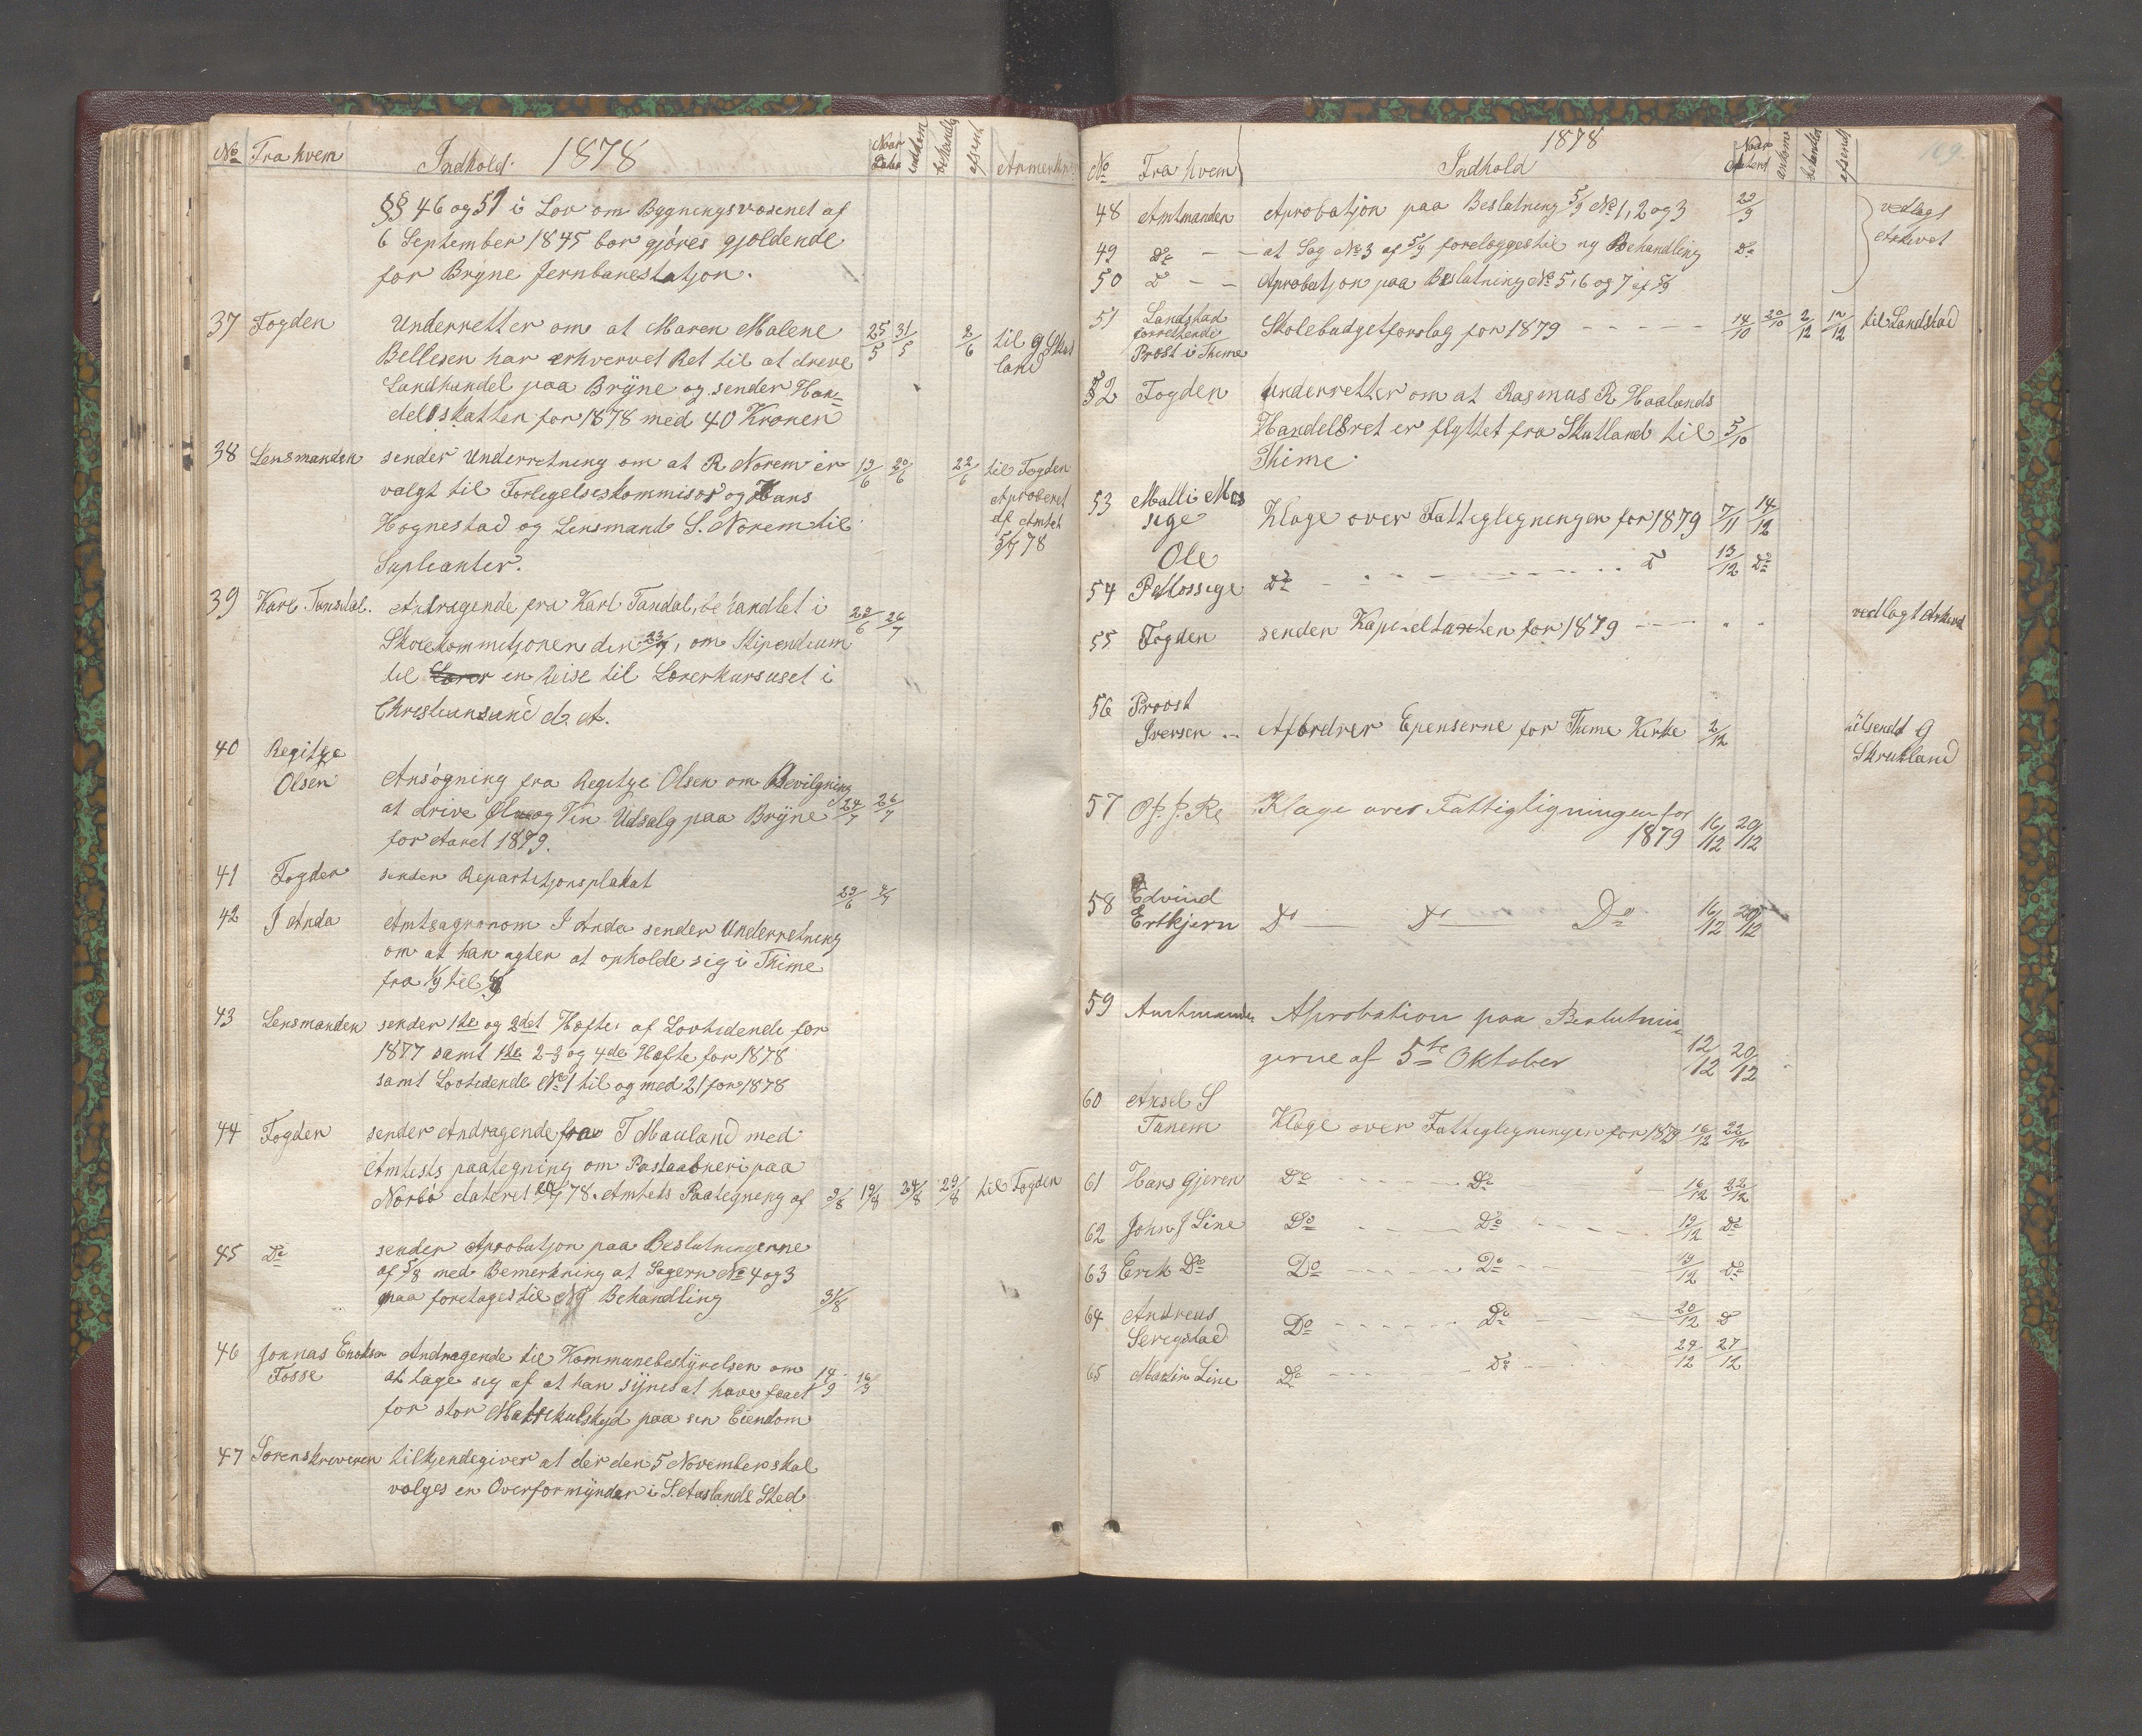 1878
No Fra hvem Indhold. Naar Dater indkom behandlet afsendt Anmerkn.
§§ 46 og 51 i Lov om Bygningsvæsenet af
6 September 1845 bør gjøres gjældende
for Bryne Jernbanestatjon.
37 Fogden Underretter om at Maren Malene 25/5 31/5 2/6 til G Skret
Bellesen har erhvervet Ret til at dreve land
Landhandel paa Brÿne og sender Han=
delsskatten for 1878 med 40 Kroner
38 Lensmanden sender Underretning om at R. Norem er 19/6 20/6 22/6 til Fogden
valgt til Forligelseskommisær og Hans Aproberet
Hognestad og Lensmand S. Norem til af Amtet
Supleanter. 5/7 78
39 Karl Tandal. Andragende fra Karl Tandal, behandlet i 22/6 26/7
Skolekommisjonen den 23/7, om Stipendium
til en Reise til Lærerkursuset i
Christiansand d. A.
40 Regitze
Olsen Ansøgning fra Regitze Olsen om Bevilgning
at drive Øl og Vin Udsalg paa Brÿne 24/7 26/7
for Aaret 1879.
41 Fogden sender Repartitjonsplakat 29/6
42 J Anda Amtsagronom J Anda sender Underretning
om at han agter at opholde sig i Thime
fra 1/9 til
43 Lensmanden sender 1ste og 2det Hefte af Lovtidende for
1877 samt 1ste 2-3 og 4de Hefte for 1878
samt Lovtidende No 1 til og med 21 for 1878
44 Fogden sender Andragende fra T Mauland med
Amtets paategning om Postaabneri paa
Norbø dateret 78. Amtets Paategning af 9/8 19/8 24/8 29/8 til Fogden
45 Do sender Aprobatjon paa Beslutningerne
af 5/8 med Bemerkning at Sagern No 4 og 3
maa foretages til Ny Behandling 31/8
46 Jonnas Enoksen Andragende til Kommunebestÿrelsen om 14/9 16/9
Fosse at tage sig af at han sÿnes at have faaet
for stor Matrikulskyld paa sin Eiendom
47 Sorenskriveren tilkjendegiver at der den 5 November skal
vælges en Overformÿnder i S. Aaslands Sted
1878
169.
No Fra hvem Indhold Naar daterd ankom behandlet afsendt
48 Amtmanden Aprobatjon paa Beslutning 5/9 No 1, 2 og 3 23/9 vedlagt
49 Do - - at Sag No 3 af 5/9 forelægges til ny Behandling Do Arkivet
50 D - - Aprobatjon paa Beslutning No 5, 6 og 7 af 5/9
51 Landstad
forrettende Skolebudgetforslag for 1879 - - - - - 14/10 20/10 2/12 12/12 til Landstad
Prost i Thime
52 Fogden Underretter om at Rasmus R. Haalands
Handelsret er flyttet fra Skutland til 5/10
Thime.
53 Malli Mos
sige Klage over Fattiglegningen for 1879 7/11 14/12
Ole
54 P Mossige Do - - - - - D 13/12 Do
55 Fogden sender Kapieltaxten for 1879 - - - - vedlagt Arkivet
56 Proost
Iversen .. Affordrer Epenserne for Thime Kirke 2/12 tilsendt G
Skretland
57 O J. J. Re Klage over Fattigligningen for
1879 16/12 20/12
58 Edvind
Ertkjern Do — Do — Do 16/12 20/12
59 Amtmanden Aprobation paa Beslutnin
gerne af 5te Oktober 12/12 20/12
60 Aksel S
Tunem Klage over Fattiglegningen for 1879 16/12 22/12
61 Hans Gjeren Do - - - - Do 16/12 22/12
62 John J Line Do - - - Do - - - 19/12 Do
63 Erik Do Do - - - - Do - - 19/12 do
64 Andreas
Serigstad Do - - - - - Do - - - 20/12 D
65 Martin Line Do - - - - - Do - - - 24/12 27/12